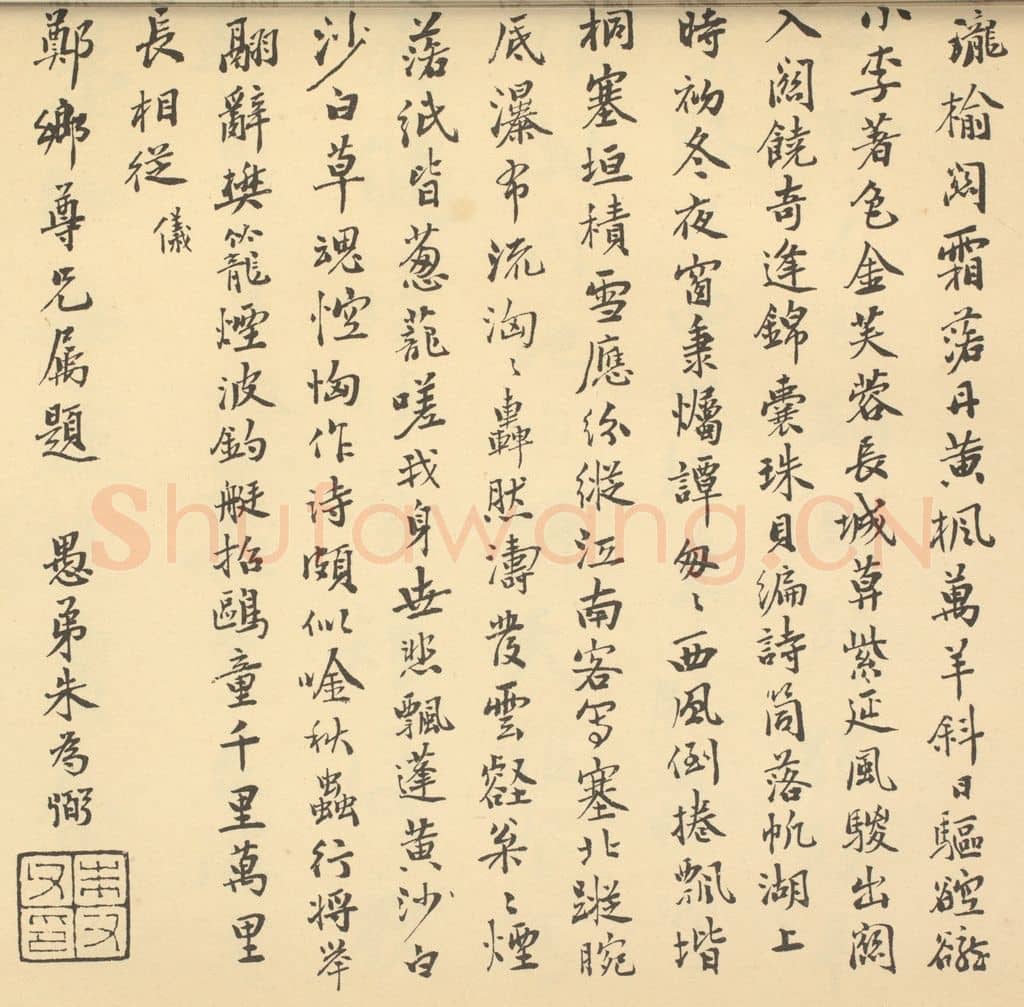 瓏榆關霜落丹黃楓萬羊斜日驅谾谾
小李著色金芙蓉長城草紫延風騣出關
入關饒奇逢錦囊珠貝編詩筒落帆湖上
時初冬夜窗秉爥譚匆〻西風倒捲飄堦
桐塞垣積雪應紛縱江南客寫塞北蹤腕
底瀑布流洶〻轟然濤發雲壑舂〻煙
落紙皆蔥蘢嗟我身世悲飄蓬黃沙白
沙白草魂悾恫作詩頗似唫秋蟲行將舉
翮辭樊籠煙波釣艇招鷗童千里萬里
長相從 儀
鄭鄉尊兄屬題 愚弟朱為弼
Shufawang.CN